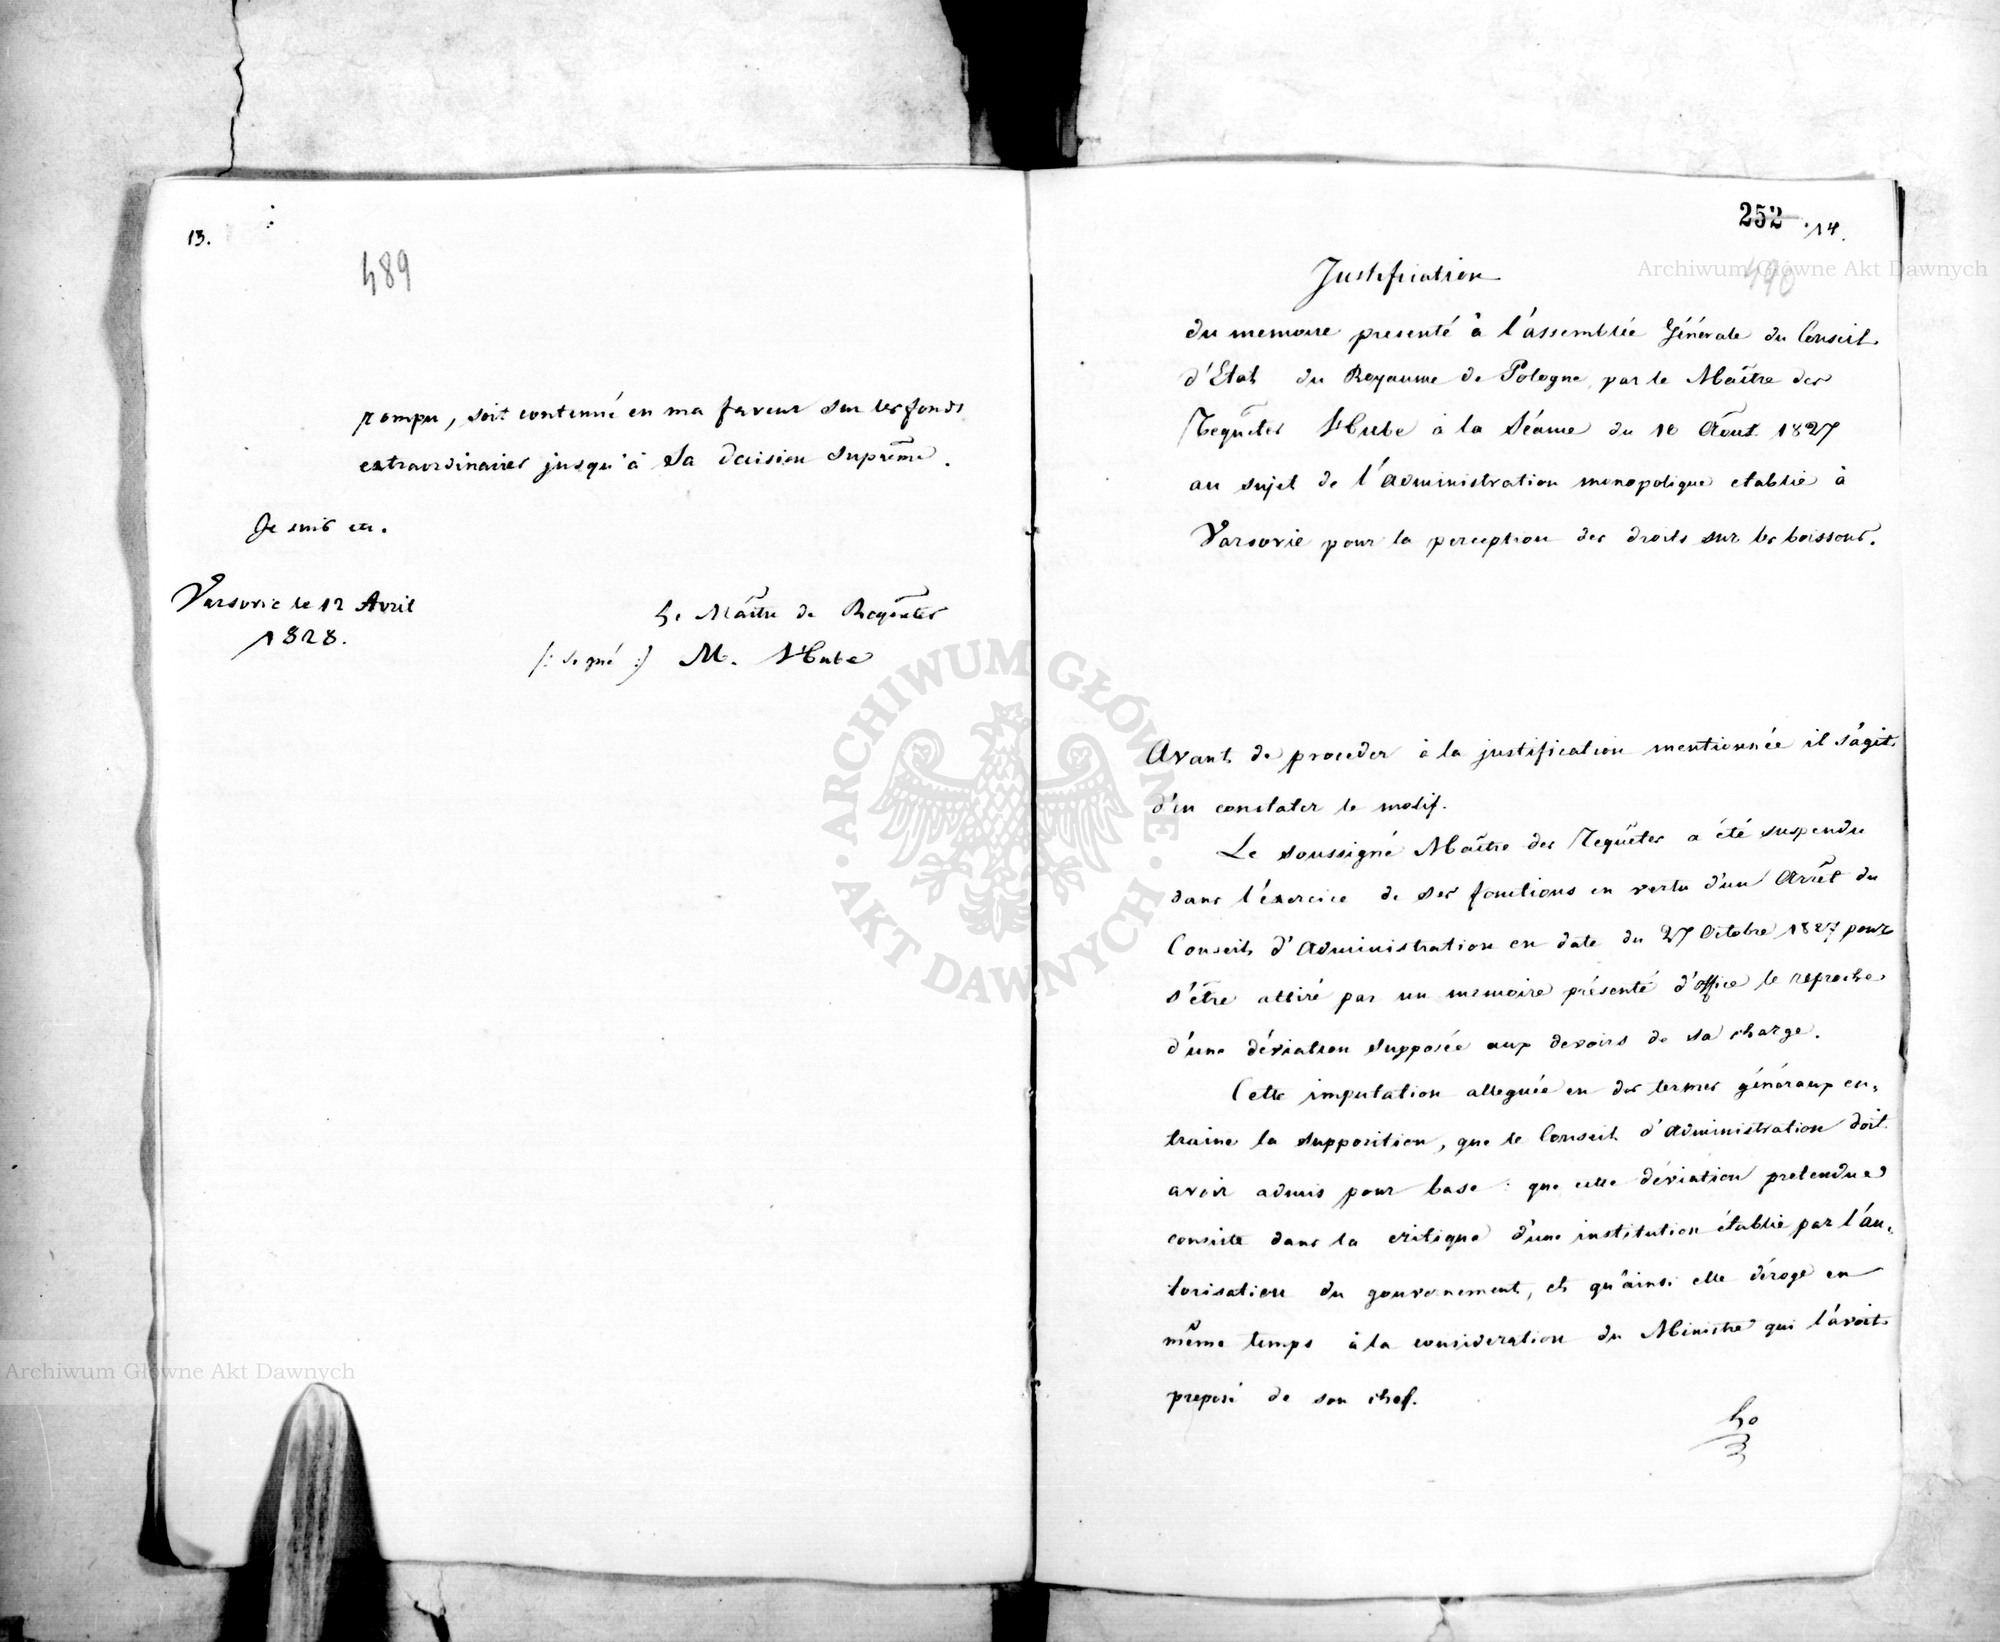 13.
489
rompu, soit continué en ma faveur sur les fonds
extraordinaires jusqu'à Sa décision Suprême.
Je suis etc.
Varsovie le 12 Avril
1828.
Le Maître de Requêtes
/: signé :/ M. Hube
252 14.
490
Justification
du memoire presenté à l'assemblée Générale du Conseil
d'Etat du Royaume de Pologne, par le Maître des
Requêtes Hube à la Séance du 18 Août 1827
au sujet de l'administration monopolique etablie à
Varsovie pour la perception des droits sur les boissons.
Avant de proceder à la justification mentionnée il s'agit
d'en constater le motif.
Le soussigné Maître des Requêtes a été suspendu
dans l'éxercice de ses fonctions en vertu d'un Arrêt du
Conseil d'Administration en date du 27 Octobre 1827 pour
s'être attiré par un memoire présenté d'office le reproche
d'une déviation supposée aux devoirs de sa charge.
Cette imputation alleguée en des termes généraux en,
traine la supposition, que le Conseil d'Administration doit
avoir admis pour base: que cette déviation pretendue
consiste dans la critique d'une institution établie par l'au,
torisation du gouvernement, et qu'ainsi elle déroge en
même temps à la consideration du Ministre qui l'avoit
preposé de son chef.
ARCHIWUM GŁÓWNE AKT DAWNYCH
Archiwum Główne Akt Dawnych
Archiwum Główne Akt Dawnych